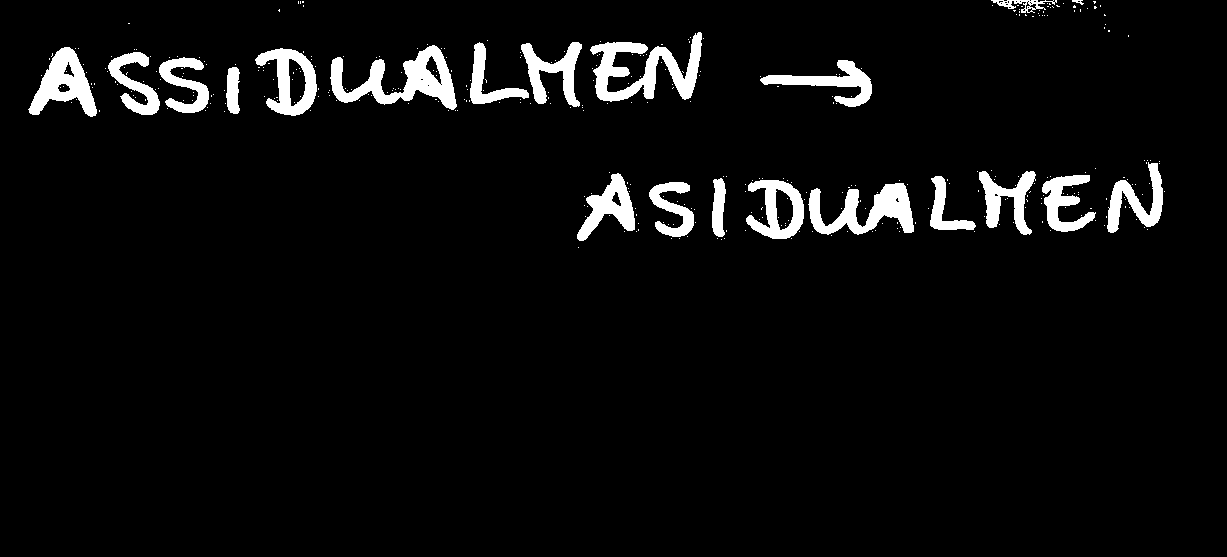 ASSIDUALMEN →
ASIDUALMEN